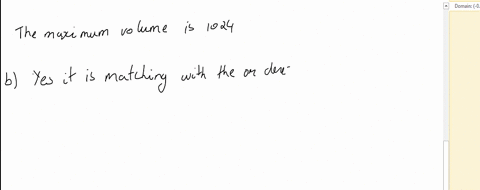 The maximum volume is 1024
b) Yes it is matching with the or
Domain: (-0.